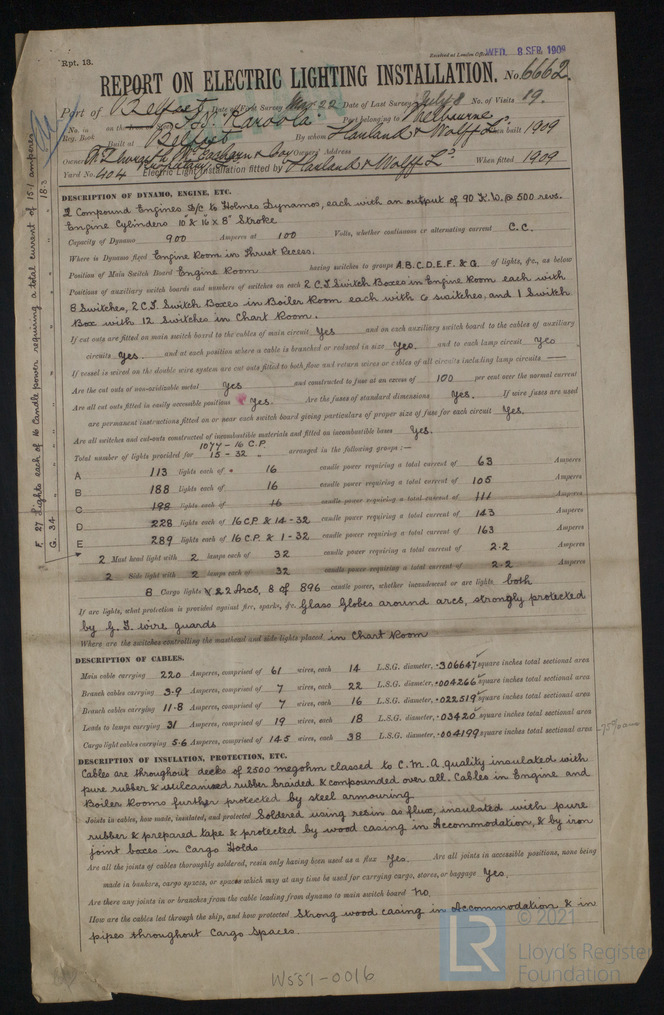 Rpt. 13.
Received at London Office WED. 8 SEP. 1909
REPORT ON ELECTRIC LIGHTING INSTALLATION. No. 6662.
Port of Belfast Date of First Survey Mar 22 Date of Last Survey July 8 No. of Visits 19.
No. in Reg. Book on the S.S. "Karoola" Port belonging to Melbourne
Built at Belfast By whom Harland & Wolff Ld. When built 1909
Owners McEacharn & Coy Owners' Address
Proprietary Ld.
Yard No. 404 Electric Light Installation fitted by Harland & Wolff Ld. When fitted 1909
DESCRIPTION OF DYNAMO, ENGINE, ETC.
2 Compound Engines D/C to Holmes Dynamos, each with an output of 90 K.W. @ 500 revs.
Engine Cylinders 10" & 16" x 8" Stroke
Capacity of Dynamo 900 Amperes at 100 Volts, whether continuous or alternating current C.C.
Where is Dynamo fixed Engine Room in Thrust Recess.
Position of Main Switch Board Engine Room having switches to groups A.B.C.D.E.F. & G of lights, &c., as below
Positions of auxiliary switch boards and numbers of switches on each 2 C.I. Switch Boxes in Engine Room each with
8 Switches, 2 C.I. Switch Boxes in Boiler Room each with 6 switches, and 1 Switch
Box with 12 Switches in Chart Room.
If cut outs are fitted on main switch board to the cables of main circuit Yes and on each auxiliary switch board to the cables of auxiliary
circuits Yes and at each position where a cable is branched or reduced in size Yes and to each lamp circuit Yes
If vessel is wired on the double wire system are cut outs fitted to both flow and return wires or cables of all circuits including lamp circuits —
Are the cut outs of non-oxidizable metal Yes and constructed to fuse at an excess of 100 per cent over the normal current
Are all cut outs fitted in easily accessible positions Yes. Are the fuses of standard dimensions Yes. If wire fuses are used
are permanent instructions fitted on or near each switch board giving particulars of proper size of fuse for each circuit Yes.
Are all switches and cut-outs constructed of incombustible materials and fitted on incombustible bases Yes.
Total number of lights provided for 1077 - 16 C.P. 15 - 32 " arranged in the following groups :—
A 113 lights each of 16 candle power requiring a total current of 63 Amperes
B 188 lights each of 16 candle power requiring a total current of 105 Amperes
C 198 lights each of 16 candle power requiring a total current of 111 Amperes
D 228 lights each of 16 C.P. & 14 - 32 candle power requiring a total current of 143 Amperes
E 289 lights each of 16 C.P. & 1 - 32 candle power requiring a total current of 163 Amperes
2 Mast head light with 2 lamps each of 32 candle power requiring a total current of 2.2 Amperes
2 Side light with 2 lamps each of 32 candle power requiring a total current of 2.2 Amperes
8 Cargo lights & 2 Arcs, 8 of 896 candle power, whether incandescent or arc lights both
If arc lights, what protection is provided against fire, sparks, &c. Glass Globes around arcs, strongly protected
by G.I. wire guards
Where are the switches controlling the masthead and side lights placed in Chart Room
F. 27 Lights each of 16 Candle power requiring a total current of 15.1 amperes
G. 34 " " " " " " 18.3 "
DESCRIPTION OF CABLES.
Main cable carrying 220 Amperes, comprised of 61 wires, each 14 L.S.G. diameter, .306647 square inches total sectional area
Branch cables carrying 3.9 Amperes, comprised of 7 wires, each 22 L.S.G. diameter, .004266 square inches total sectional area
Branch cables carrying 11.8 Amperes, comprised of 7 wires, each 16 L.S.G. diameter, .022519 square inches total sectional area
Leads to lamps carrying 31 Amperes, comprised of 19 wires, each 18 L.S.G. diameter, .03420 square inches total sectional area
Cargo light cables carrying 5.6 Amperes, comprised of 145 wires, each 38 L.S.G. diameter, .004199 square inches total sectional area
DESCRIPTION OF INSULATION, PROTECTION, ETC.
Cables are throughout decks of 2500 megohm classed to C.M.A. quality insulated with
pure rubber & vulcanised rubber braided & compounded over all. Cables in Engine and
Boiler Rooms further protected by steel armouring
Joints in cables, how made, insulated, and protected Soldered using resin as flux, insulated with pure
rubber & prepared tape & protected by wood casing in Accommodation, & by iron
joint boxes in Cargo Holds
Are all the joints of cables thoroughly soldered, resin only having been used as a flux Yes. Are all joints in accessible positions, none being
made in bunkers, cargo spaces, or spaces which may at any time be used for carrying cargo, stores, or baggage Yes.
Are there any joints in or branches from the cable leading from dynamo to main switch board No.
How are the cables led through the ship, and how protected Strong wood casing in Accommodation & in
pipes throughout Cargo Spaces.
W557-0016
LR
© 2021
Lloyd's Register
Foundation